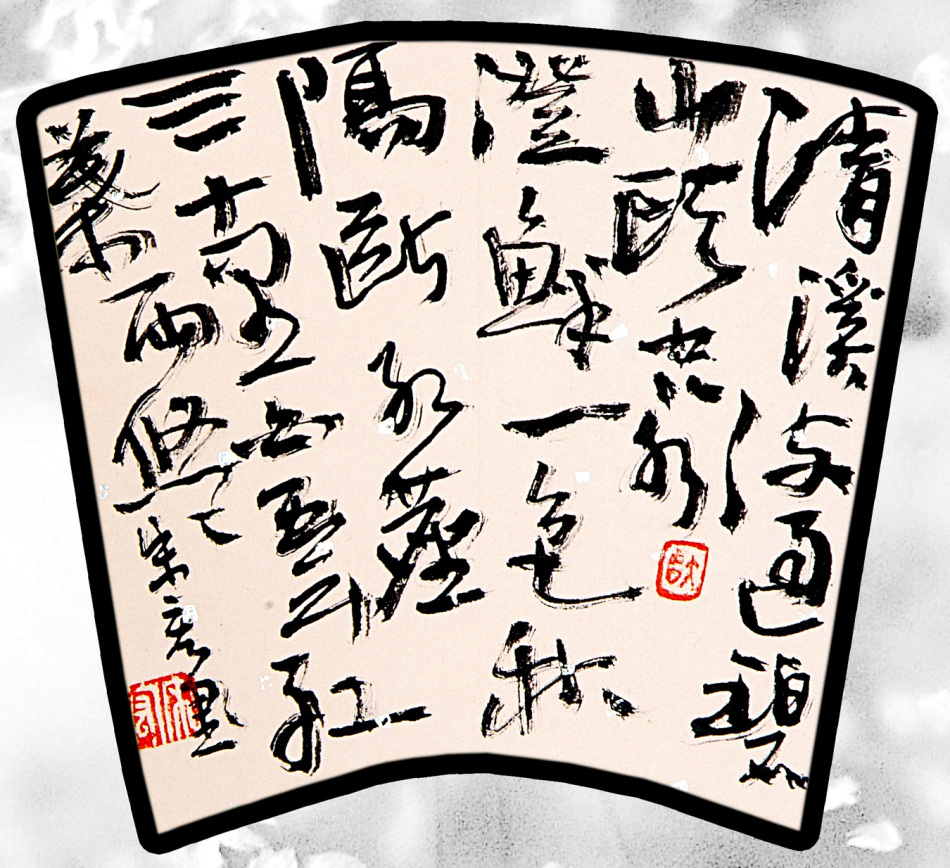 清溪流過碧
山頭空水
澄鮮一色秋
隔斷紅塵
三十里白雲紅
葉兩悠々